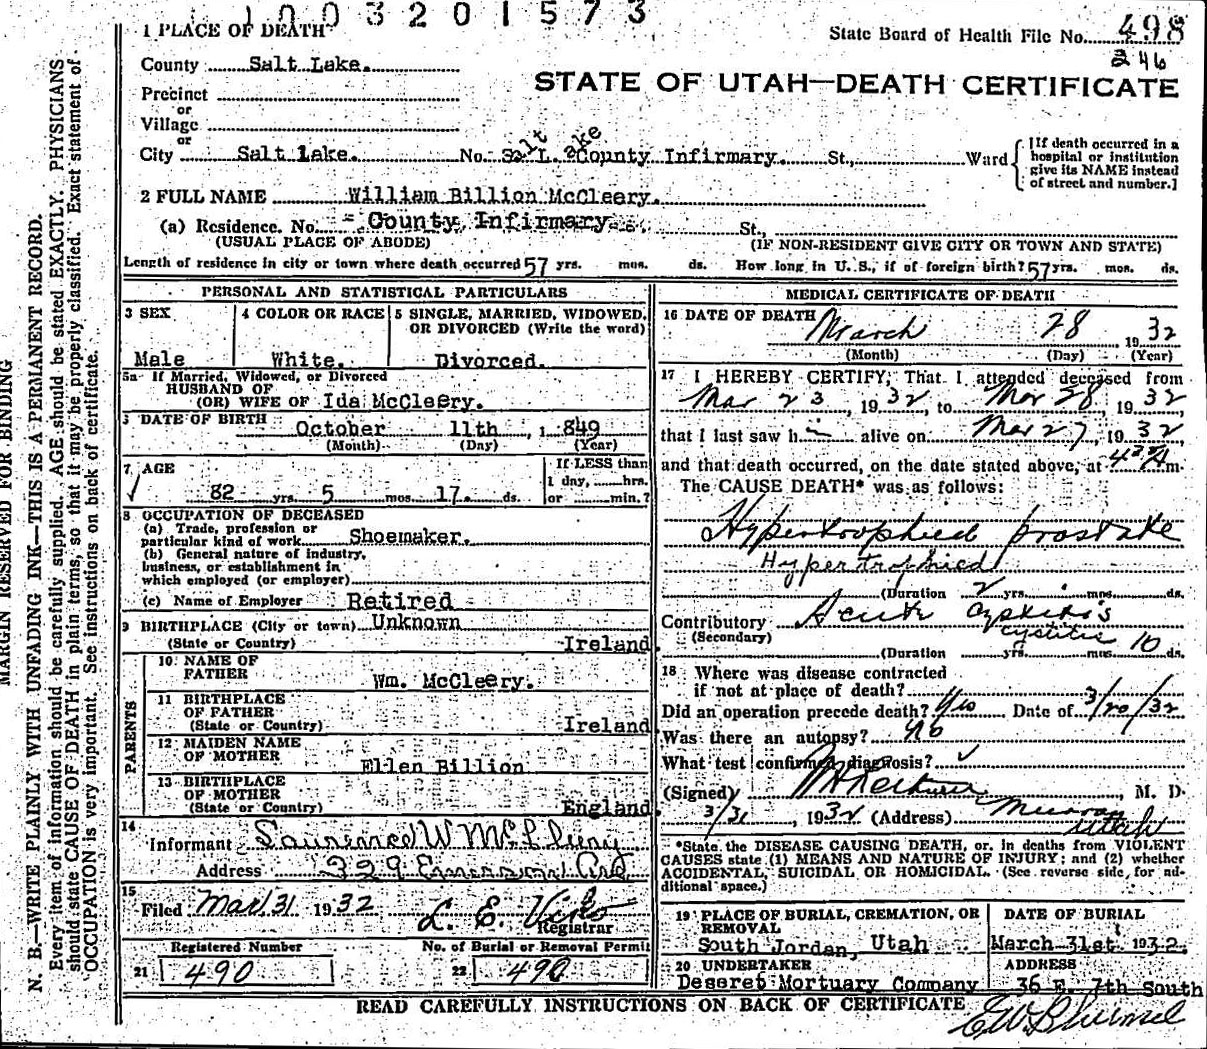 1003201573
1 PLACE OF DEATH
State Board of Health File No. 498
246
County Salt Lake.
STATE OF UTAH—DEATH CERTIFICATE
Precinct
or
Village
or
City Salt Lake. No. Salt Lake County Infirmary. St., Ward
[If death occurred in a hospital or institution give its NAME instead of street and number.]
2 FULL NAME William Billion McCleery.
(a) Residence. No. County Infirmary St.,
(USUAL PLACE OF ABODE) (IF NON-RESIDENT GIVE CITY OR TOWN AND STATE)
Length of residence in city or town where death occurred 57 yrs. mos. ds. How long in U. S., if of foreign birth? 57 yrs. mos. ds.
PERSONAL AND STATISTICAL PARTICULARS
3 SEX 4 COLOR OR RACE 5 SINGLE, MARRIED, WIDOWED, OR DIVORCED (Write the word)
Male White. Divorced.
5a If Married, Widowed, or Divorced
HUSBAND OF
(OR) WIFE OF Ida McCleery.
DATE OF BIRTH October 11th, 1849
(Month) (Day) (Year)
7 AGE If LESS than
1 day, hrs.
82 yrs. 5 mos. 17. ds. or min.?
8 OCCUPATION OF DECEASED
(a) Trade, profession or
particular kind of work Shoemaker.
(b) General nature of industry,
business, or establishment in
which employed (or employer)
(c) Name of Employer Retired
9 BIRTHPLACE (City or town) Unknown
(State or Country) Ireland
PARENTS
10 NAME OF
FATHER Wm. McCleery.
11 BIRTHPLACE
OF FATHER
(State or Country) Ireland
12 MAIDEN NAME
OF MOTHER Ellen Billion
13 BIRTHPLACE
OF MOTHER
(State or Country) England
14
Informant Laurence W McCleery
Address 329 Emerson Ave
15
Filed Mar 31 1932 L. E. Viko
Registrar
Registered Number No. of Burial or Removal Permit
21 490 22 490
MEDICAL CERTIFICATE OF DEATH
16 DATE OF DEATH March 28 1932
(Month) (Day) (Year)
17 I HEREBY CERTIFY, That I attended deceased from
Mar 23, 1932, to Mar 28, 1932,
that I last saw h im alive on Mar 27, 1932
and that death occurred, on the date stated above, at m.
The CAUSE DEATH* was as follows:
Hypertrophied prostate
Hypertrophied
(Duration 2 yrs. mos. ds.
Contributory Acute cystitis
(Secondary) cystitis
(Duration yrs. mos. 10 ds.
18 Where was disease contracted
if not at place of death?
Did an operation precede death? Yes Date of 3/20/32
Was there an autopsy? No
What test confirmed diagnosis?
(Signed) , M. D.
3/31, 1932 (Address) Murray
Utah
*State the DISEASE CAUSING DEATH, or, in deaths from VIOLENT
CAUSES state (1) MEANS AND NATURE OF INJURY; and (2) whether
ACCIDENTAL, SUICIDAL OR HOMICIDAL. (See reverse side for ad-
ditional space.)
19 PLACE OF BURIAL, CREMATION, OR REMOVAL DATE OF BURIAL
South Jordan, Utah March 31st. 1932.
20 UNDERTAKER ADDRESS
Deseret Mortuary Company 36 E. 7th South
READ CAREFULLY INSTRUCTIONS ON BACK OF CERTIFICATE
MARGIN RESERVED FOR BINDING
N. B.—WRITE PLAINLY WITH UNFADING INK—THIS IS A PERMANENT RECORD.
Every item of information should be carefully supplied. AGE should be stated EXACTLY. PHYSICIANS
should state CAUSE OF DEATH in plain terms, so that it may be properly classified. Exact statement of
OCCUPATION is very important. See instructions on back of certificate.